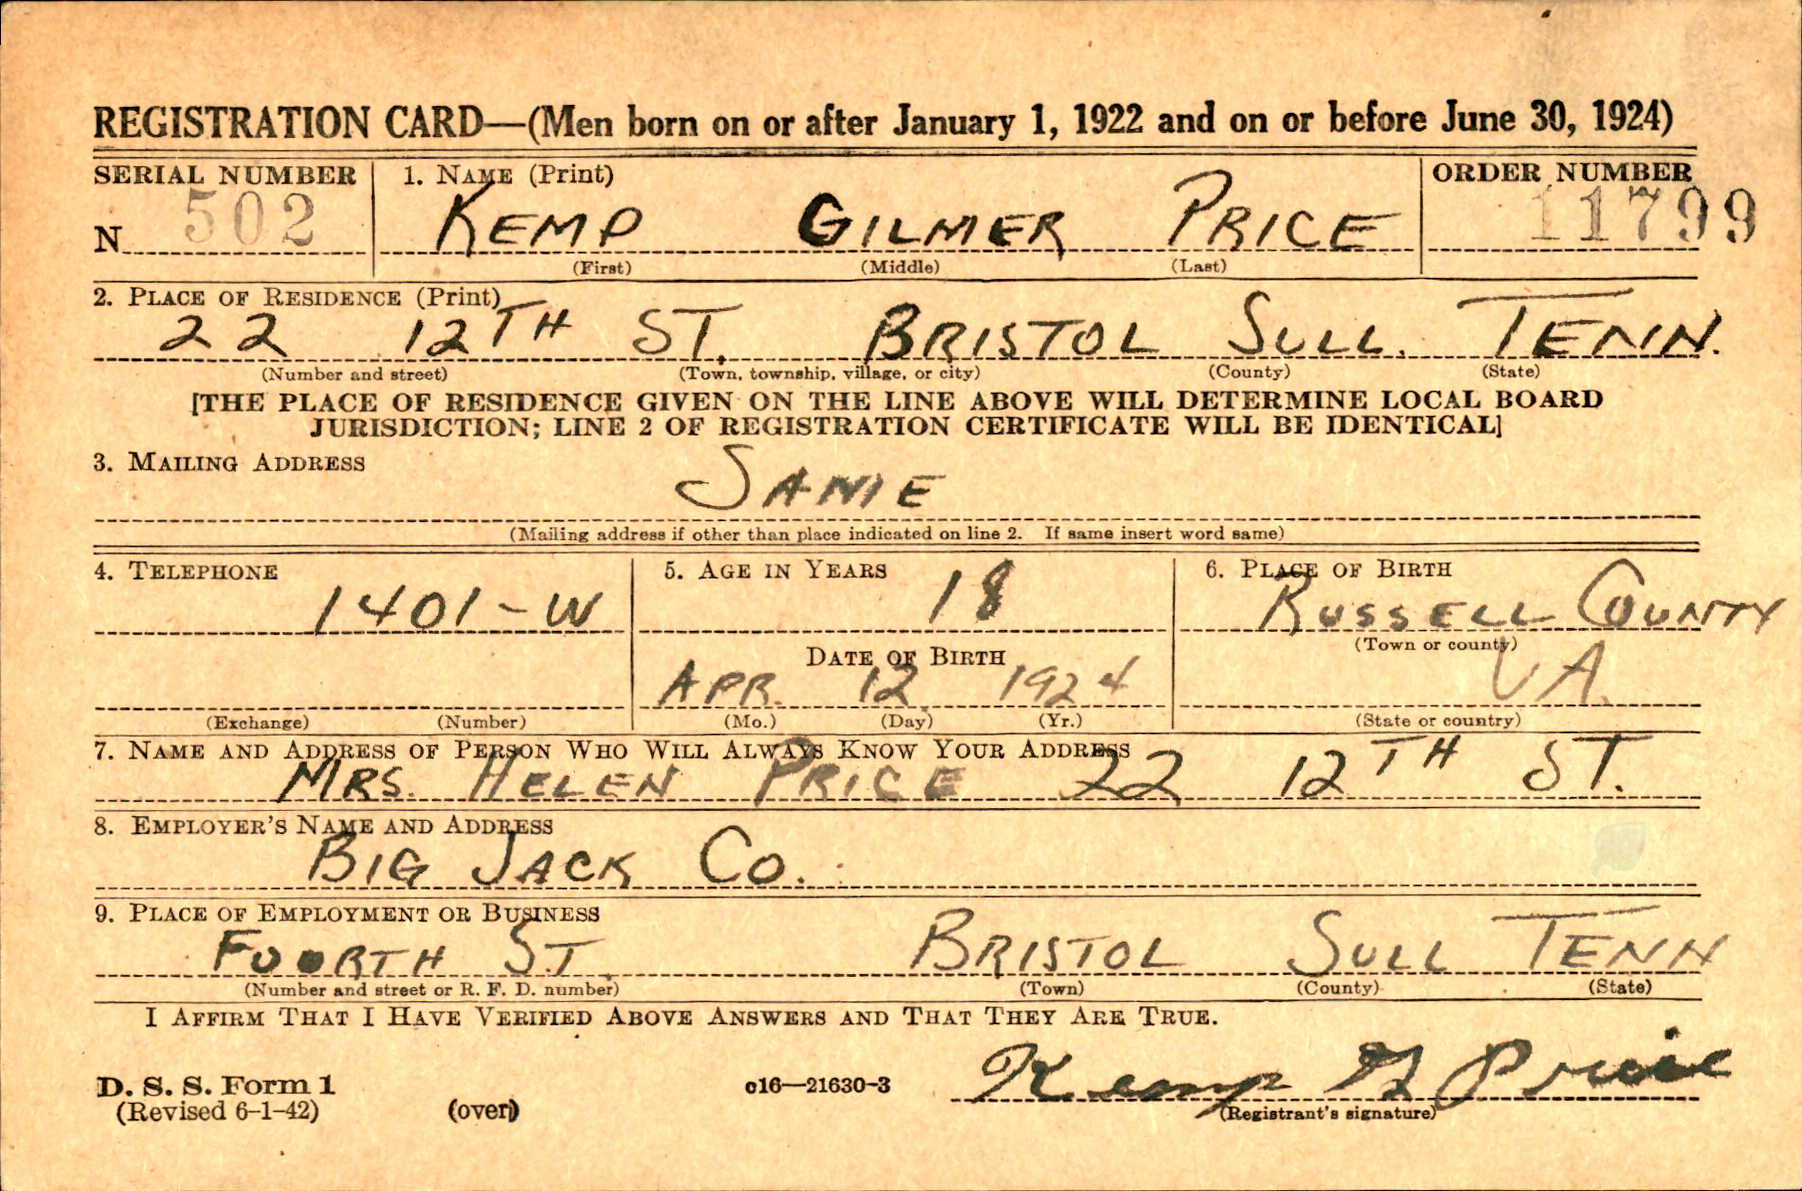 REGISTRATION CARD—(Men born on or after January 1, 1922 and on or before June 30, 1924)
SERIAL NUMBER 1. NAME (Print) ORDER NUMBER
N 502 KEMP GILMER PRICE 11799
(First) (Middle) (Last)
2. PLACE OF RESIDENCE (Print)
22 12TH ST. BRISTOL SULL. TENN.
(Number and street) (Town, township, village, or city) (County) (State)
[THE PLACE OF RESIDENCE GIVEN ON THE LINE ABOVE WILL DETERMINE LOCAL BOARD
JURISDICTION; LINE 2 OF REGISTRATION CERTIFICATE WILL BE IDENTICAL]
3. MAILING ADDRESS
SAME
(Mailing address if other than place indicated on line 2. If same insert word same)
4. TELEPHONE 5. AGE IN YEARS 6. PLACE OF BIRTH
1401-W 18 RUSSELL COUNTY
(Town or county)
DATE OF BIRTH
APR. 12 1924 VA.
(Exchange) (Number) (Mo.) (Day) (Yr.) (State or country)
7. NAME AND ADDRESS OF PERSON WHO WILL ALWAYS KNOW YOUR ADDRESS
MRS. HELEN PRICE 22 12TH ST.
8. EMPLOYER'S NAME AND ADDRESS
BIG JACK CO.
9. PLACE OF EMPLOYMENT OR BUSINESS
FOURTH ST. BRISTOL SULL TENN
(Number and street or R. F. D. number) (Town) (County) (State)
I AFFIRM THAT I HAVE VERIFIED ABOVE ANSWERS AND THAT THEY ARE TRUE.
D. S. S. Form 1
(Revised 6-1-42) (over) c16—21630-3 Kemp G Price
(Registrant's signature)